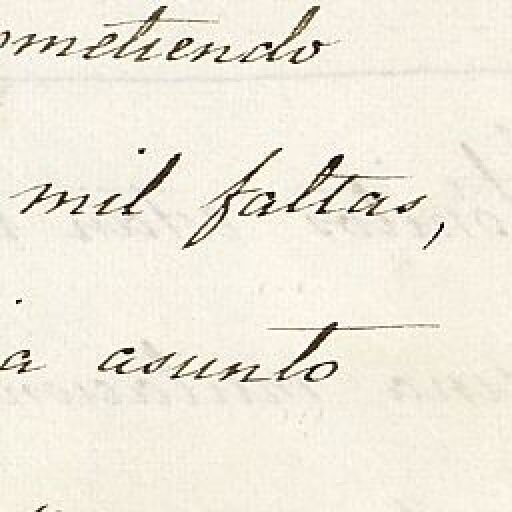 ometiendo
mil faltas,
ia asunto